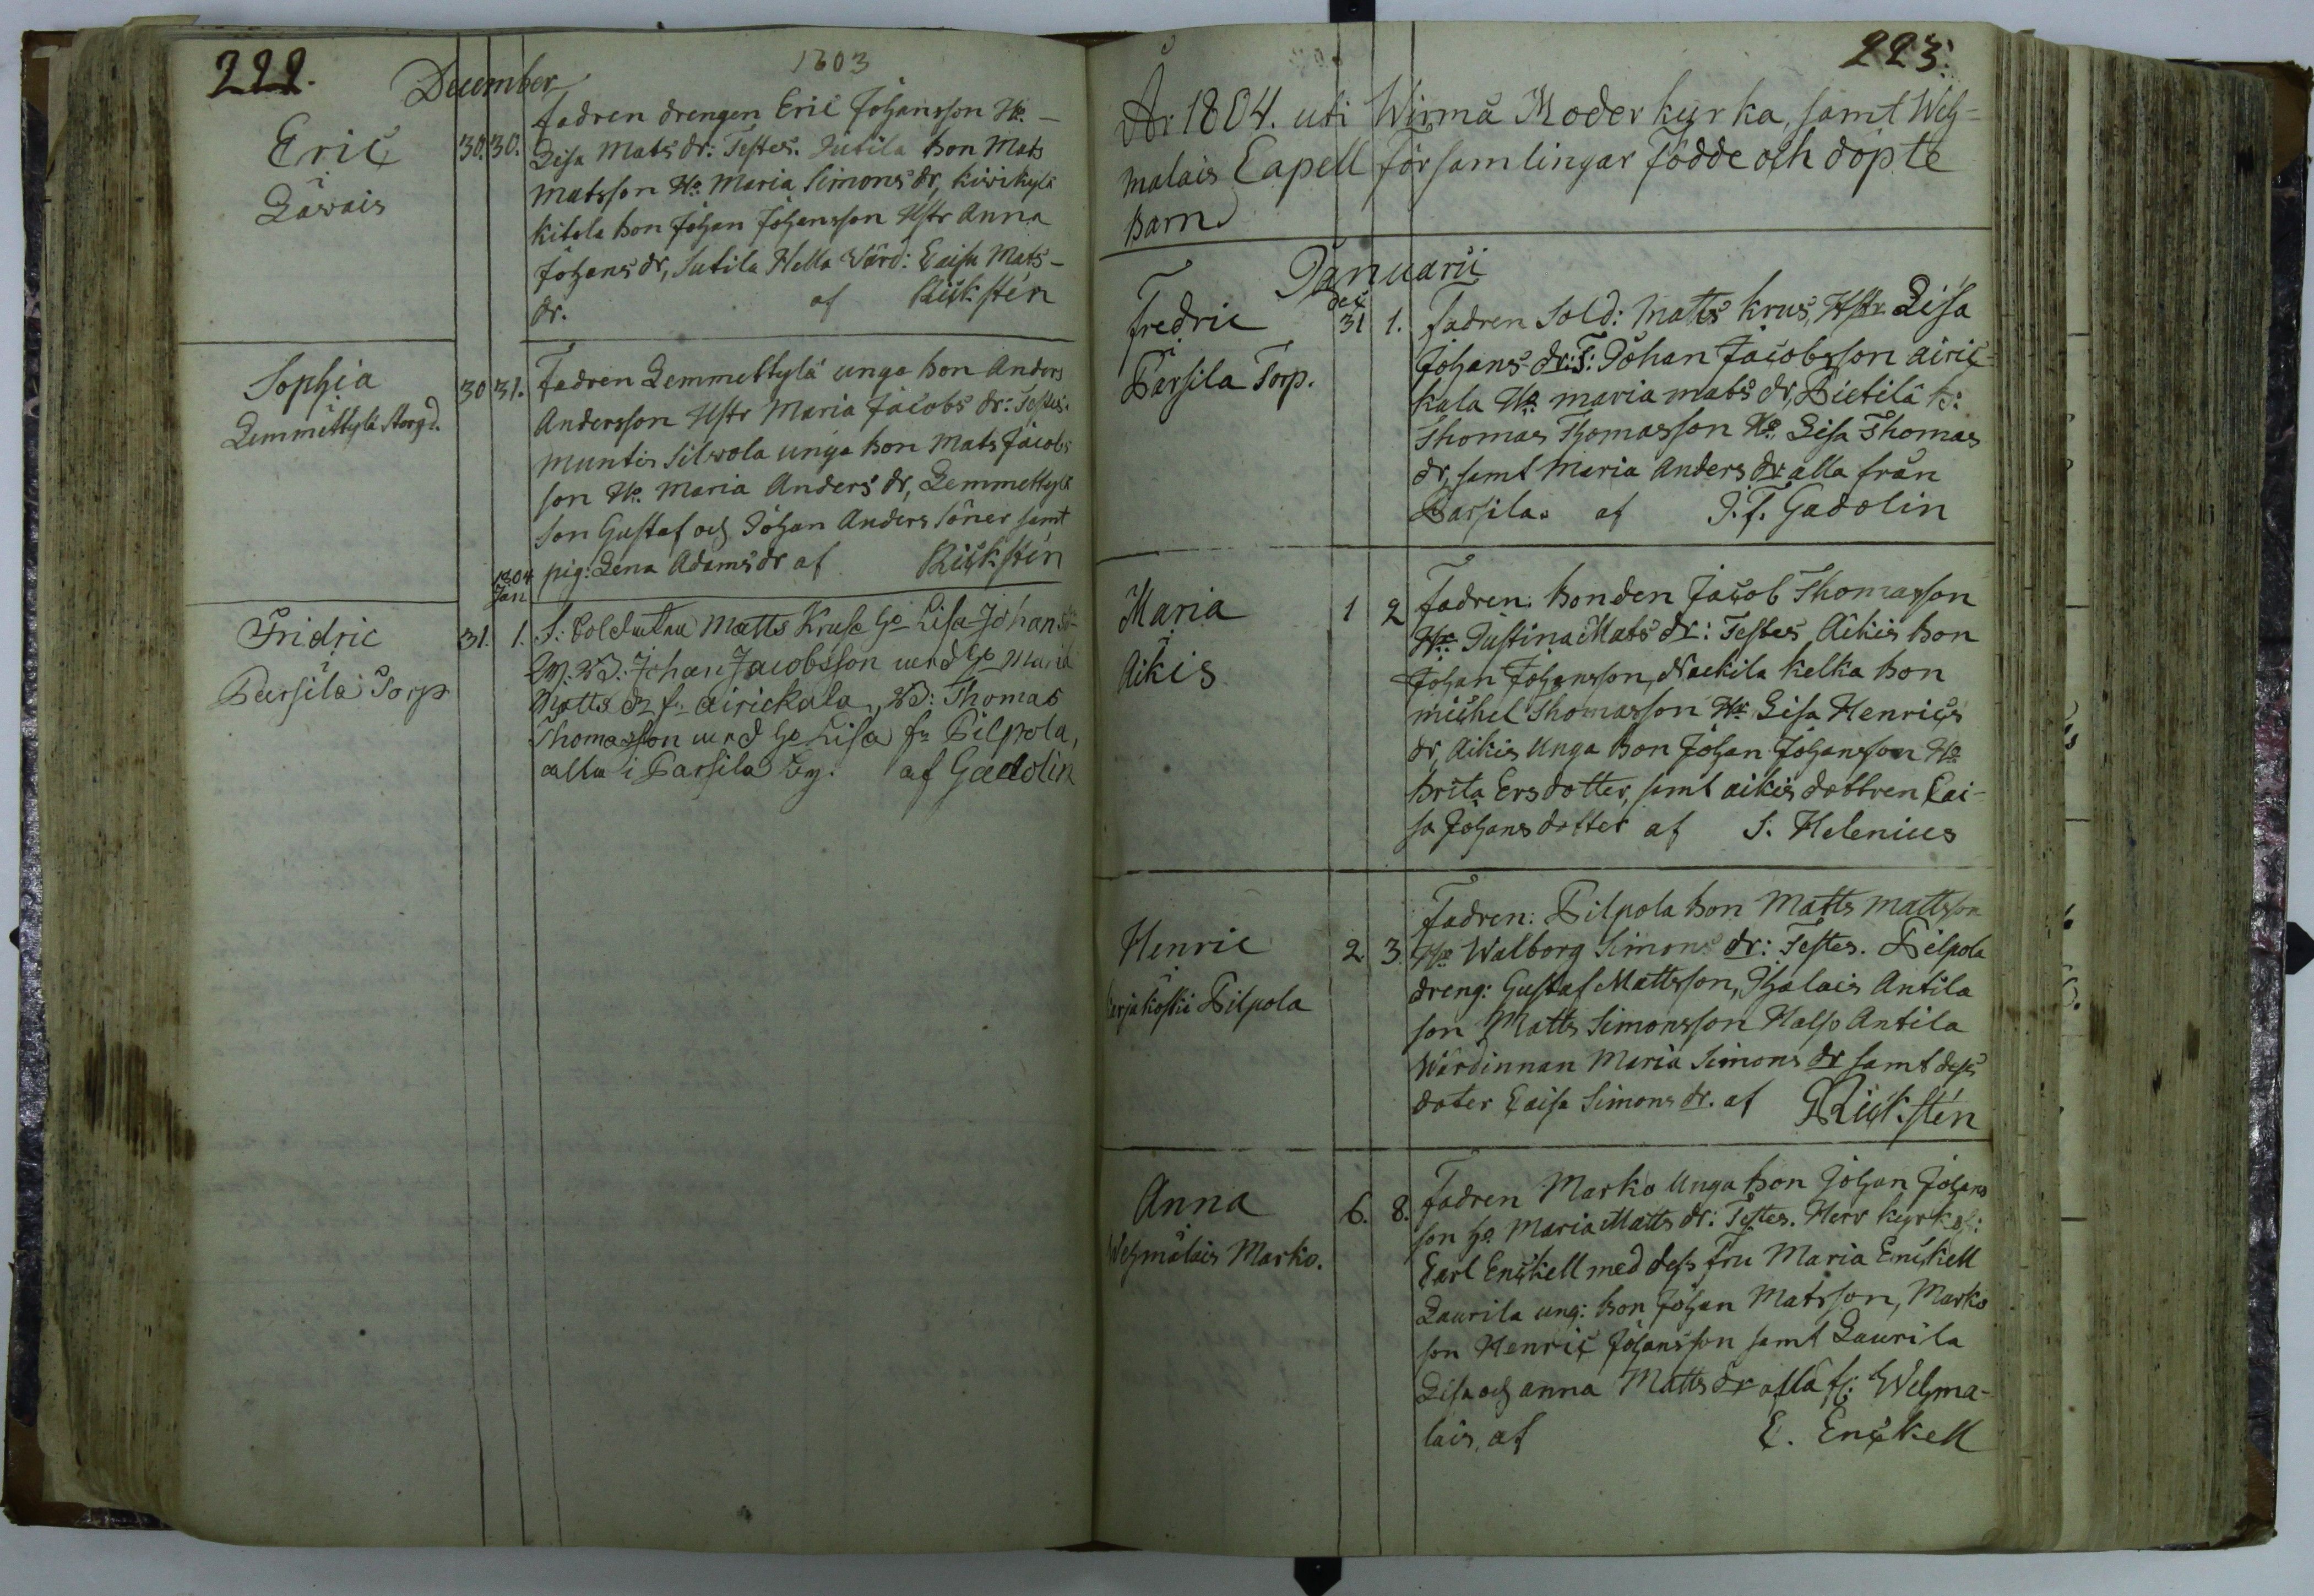 222.
1803
December
Eric
Läwais
30. 30.
Fadren drengen Eric Johansson Ho. –
Lisa Mats dr: Testes. Jutila bon Mats
Matsson Ho. Maria Simons dr, kiwikylä
kitola bon Johan Johansson Hstr Anna
Johans dr, Jutila Hella Värd: Caisa Mats-
dr. af Rickstén
Sophia
Lemmettylä Storgd.
30 31.
Fadren Lemmettylä unga bon Anders
Andersson Hstr Maria Jacobs dr: Testes.
Muntis Silvola unga bon Mats Jacobs
son Ho. Maria Anders dr, Lemmettylä
son Gustaf och Johan Anders Söner samt
pig: Lena Adams dr af Rickstén
1804
Jan
Fridric
Parsila Torp
31. 1.
F: Soldaten Matts Kruse Ho Lisa Johans dr
Johan Jacobsson med Ho Maria
Matts dr fr. Airickala, Thomas
Thomasson med Ho Lisa fr Pilpola,
alla i Parsila by. af Gadolin
223.
År 1804. uti Wirmå Moderkyrka, samt Weh=
malais Capell församlingar Födde och döpte
Barn
Januarii
Fredric
i
Parsila Torp.
dec
31 1.
Fadren Sold: Matts Krus, Hstr Lisa
Johans dr: T: Johan Jacobsson airic-
kala Ho. maria mats dr, Pietilä b:
Thomas Thomasson Ho. Lisa Thomas
dr, samt Maria Anders dr alla från
Parsila. af J. F. Gadolin
Maria
Aikis
1 2
Fadren: bonden Jacob Thomasson
Ho. Justina Mats dr: Testes Aikis bon
Johan Johansson, Nackila kelka bon
Michel Thomasson Ho. Lisa Henrics
dr, Aikis Unga bon Johan Johansson Ho.
Brita Ersdotter, samt aikis dottren Cai-
sa Johansdotter af S. Helenius
Henric
Karjakoski Pilpola
2. 3.
Fadren: Pilpola bon Matts Mattsson
Ho. Walborg Simons dr: Testes. Pilpola
dreng: Gustaf Mattsson, Ihalais Antila
son Matts Simonsson Halso Antila
Wärdinnan Maria Simons dr samt dess
doter Caisa Simons dr. af Rickstén
Anna
Wehmalais Marko.
6. 8.
Fadren Marko Unga bon Johan Johans
son Ho. Maria Matts dr: Testes. Herr kyrkoh:
Carl Enckell med dess fru Maria Enckell
Laurila ung: bon Johan Matsson, Marko
son Henric Johansson samt Laurila
Lisa och anna Matts dr alla fr: Wehma-
lais, af C. Enckell